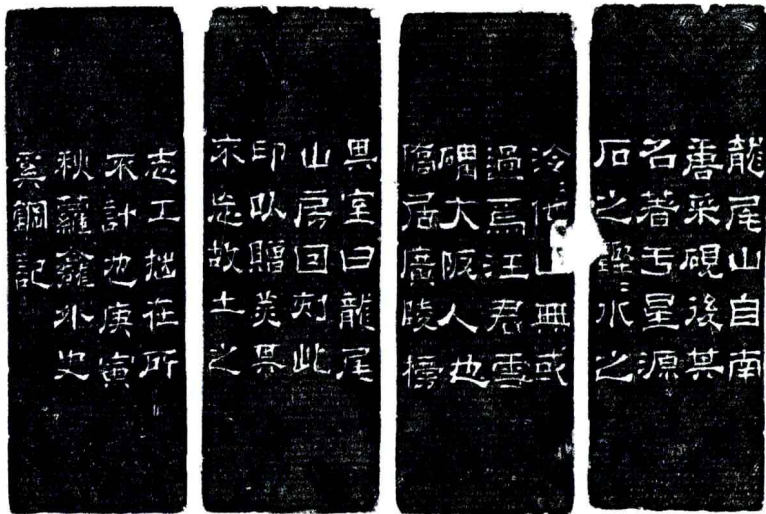 龍尾山自南
唐采硯後其
名著亏星源
石之鏗〻水之
泠〻他山無或
過焉汪君雪
礀大阪人也
僑居廣陵榜
其室曰龍尾
山房因刻此
印以贈美其
不忘故土之
志工拙在所
不計也庚寅
秋蘿龕外史
奚鋼記